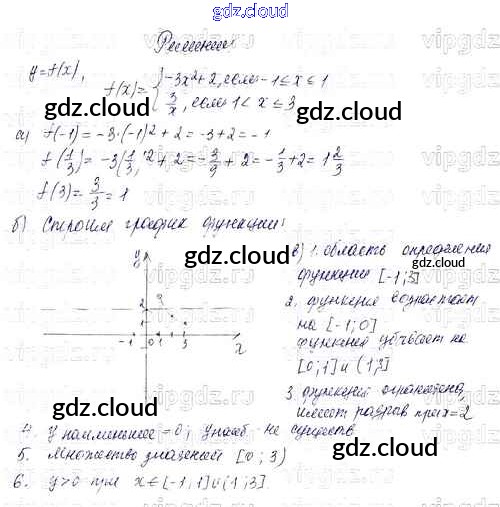 gdz.cloud
Решение
y=f(x),
f(x)= { -3x²+2, если -1 ≤ x ≤ 1
3/x, если 1 < x ≤ 3
gdz.cloud
gdz.cloud
а) f(-1) = -3·(-1)²+2 = -3+2 = -1
f(1/3) = -3(1/3)²+2 = -3/9+2 = -1/3+2 = 1 2/3
f(3) = 3/3 = 1
б) Строим график функции:
gdz.cloud
y
2
3
1
-1 0 1 3
x
в) 1. область определения
функции [-1;3]
gdz.cloud
2. функция возрастает
на [-1;0]
функция убывает на
[0;1] и (1;3]
3. функция ограничена,
имеет разрыв при x=2
gdz.cloud
gdz.cloud
4. y наименьшее =0; y наиб не
существ
5. Множество значений [0;3)
6. y>0 при x∈[-1,1]∪(1;3]
gdz.cloud